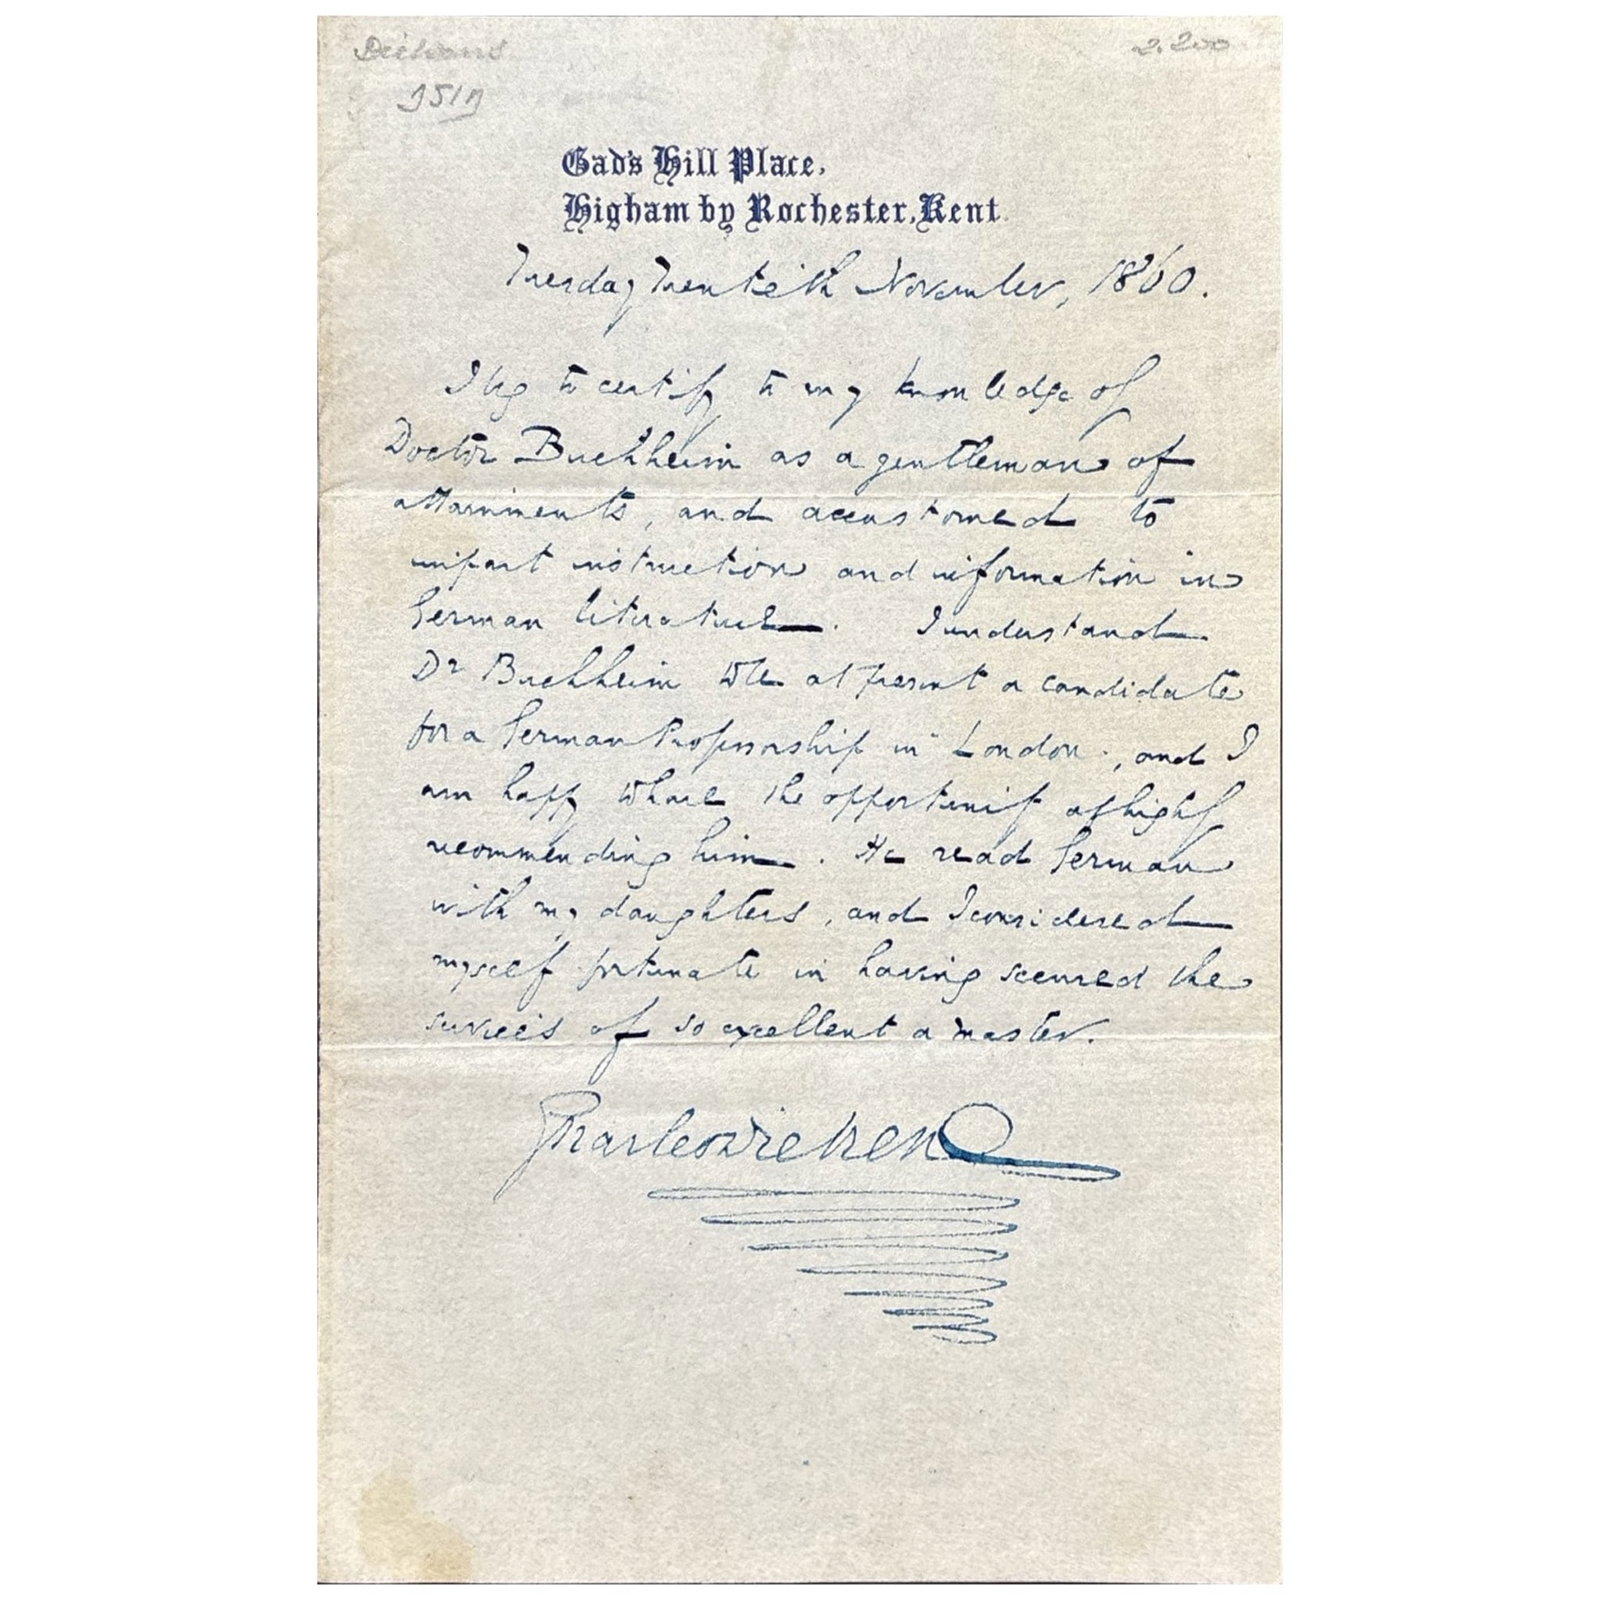 Dickens
2.200
Gad's Hill Place,
Higham by Rochester, Kent
Tuesday Twentieth November, 1860.
I beg to certify to my knowledge of
Doctor Buchheim as a gentleman of
attainments, and accustomed to
impart instruction and information in
German literature. I understand
Dr Buchheim to be at present a candidate
for a German Professorship in London; and I
am happy to have the opportunity of highly
recommending him. He read German
with my daughters, and I considered
myself fortunate in having secured the
services of so excellent a master.
Charles Dickens